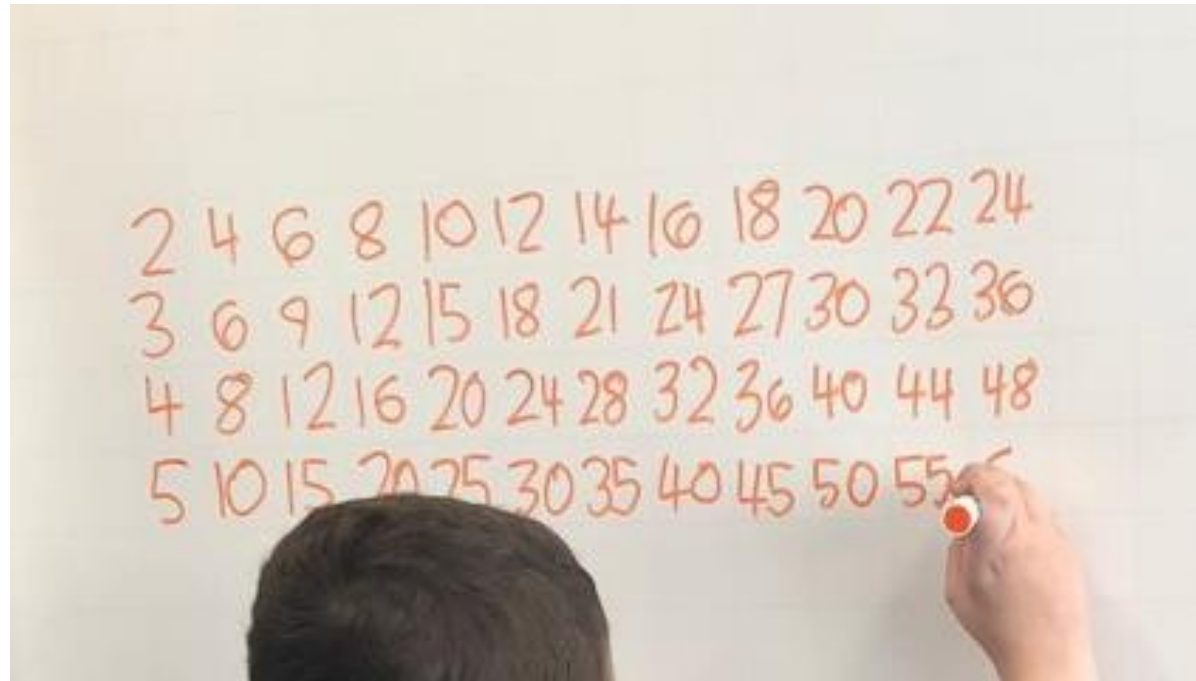 2 4 6 8 10 12 14 16 18 20 22 24
3 6 9 12 15 18 21 24 27 30 33 36
4 8 12 16 20 24 28 32 36 40 44 48
5 10 15 20 25 30 35 40 45 50 55